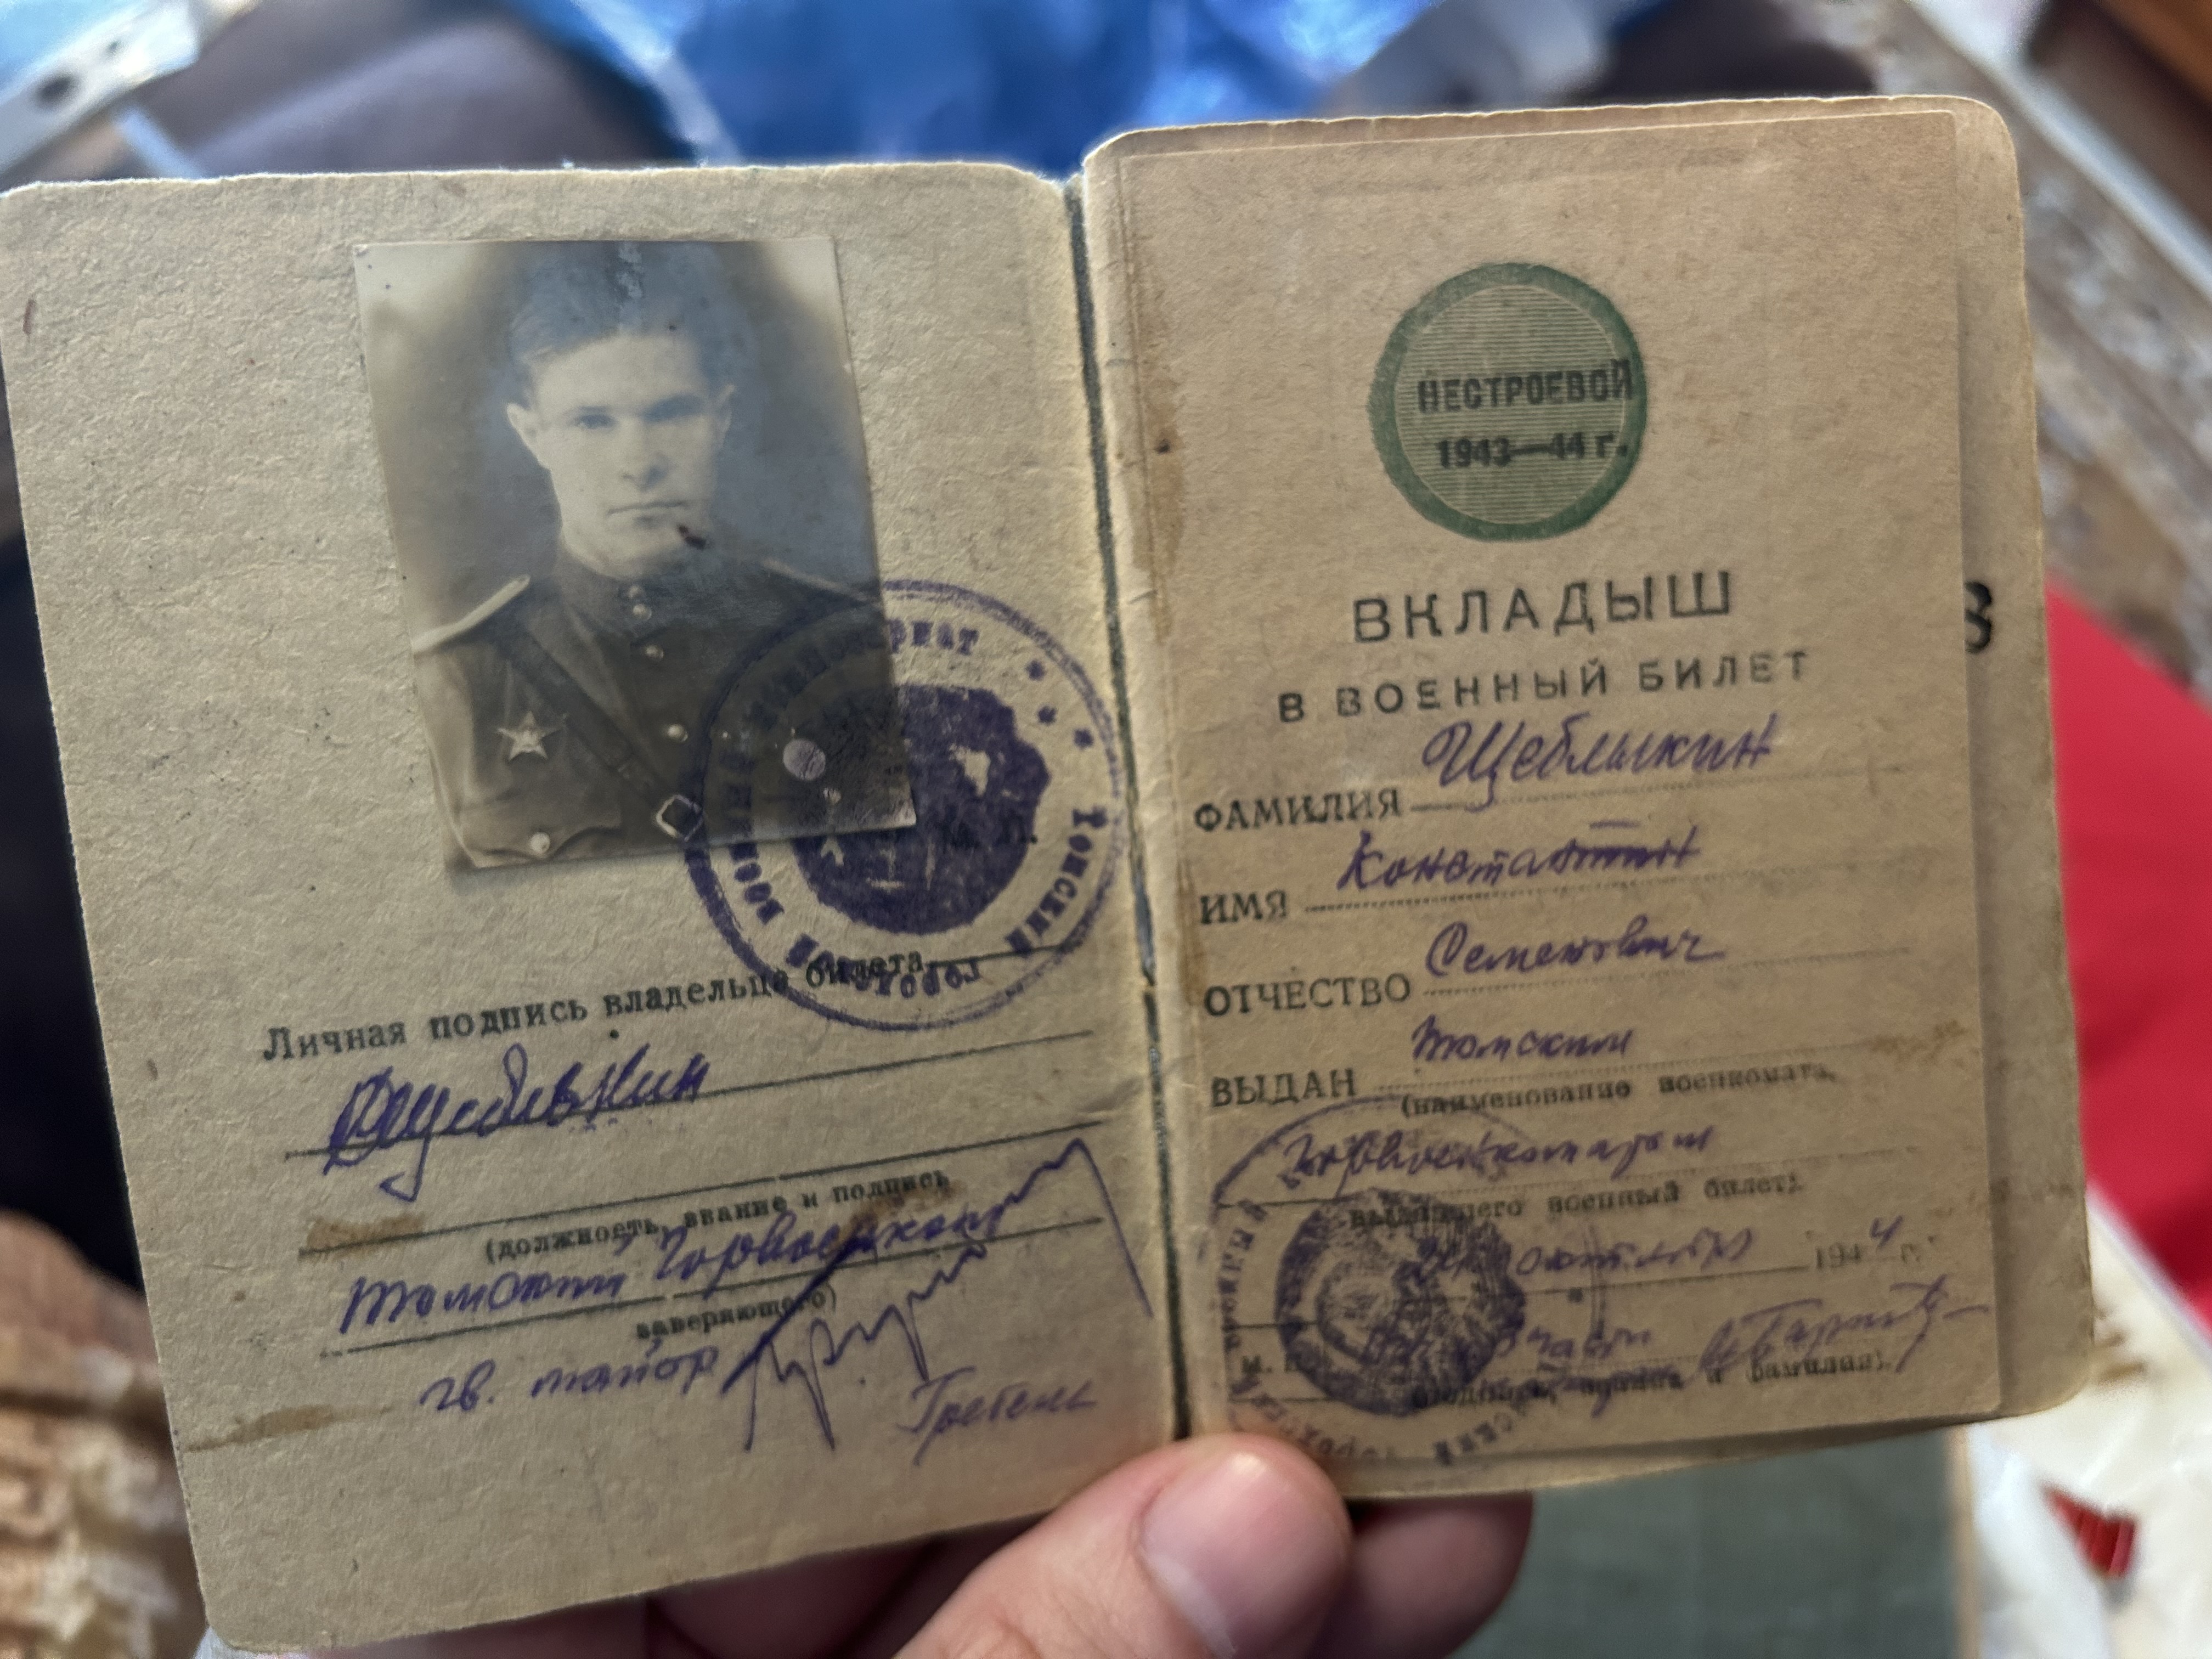 Личная подпись владельца билета
(должность, звание и подпись
Томский Горвоенком
заверяющего)
гв. майор
Томский городской военный комиссариат
НЕСТРОЕВОЙ
1943—44 г.
ВКЛАДЫШ
В ВОЕННЫЙ БИЛЕТ
ФАМИЛИЯ Щеблыкин
ИМЯ Константин
ОТЧЕСТВО Семенович
ВЫДАН Томским
(наименование военкомата,
Горвоенкоматом
выдавшего военный билет)
октября 1944 г.
М. П. части
(подпись, звание и фамилия).
В